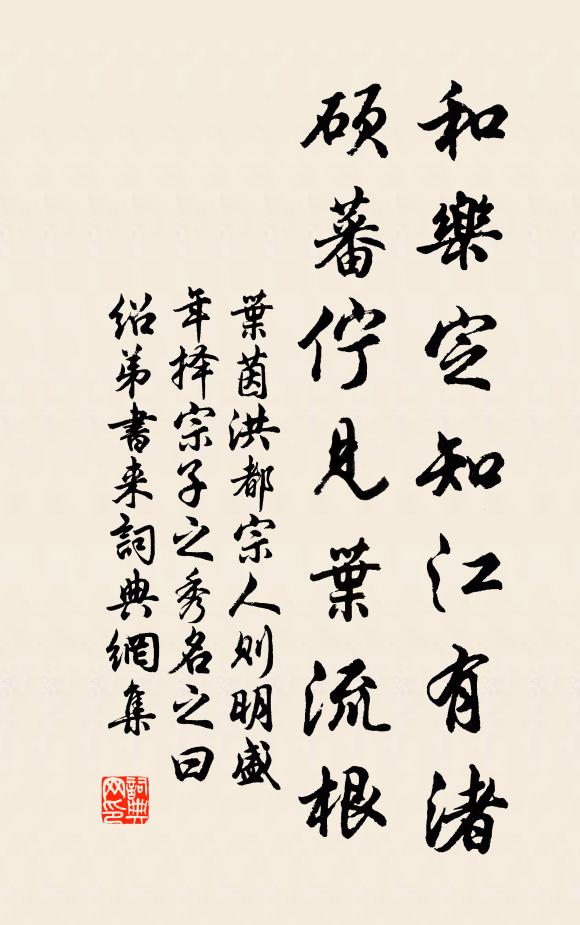 和樂定知江有渚
碩蕃佇見葉流根
葉茵洪都宗人則明盛
年择宗子之秀名之曰
绍弟書来詞典網集
詞典網印